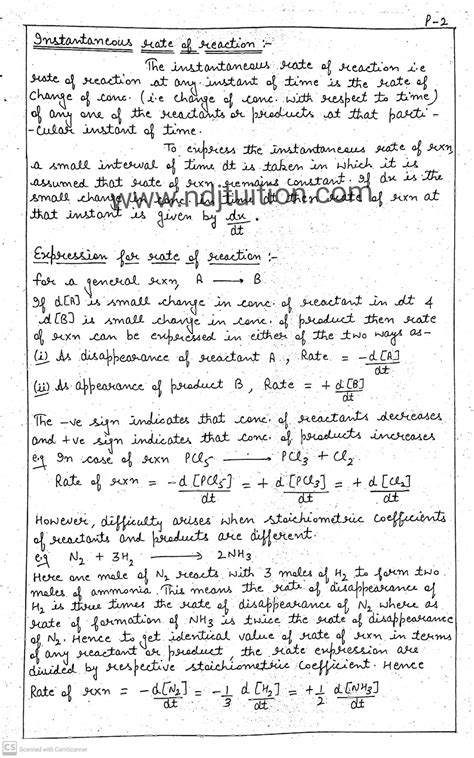 P-2
Instantaneous rate of reaction :-
The instantaneous rate of reaction i.e
rate of reaction at any instant of time is the rate of
change of conc. (i.e change of conc. with respect to time)
of any one of the reactants or products at that parti-
-cular instant of time.
To express the instantaneous rate of rxn,
a small interval of time dt is taken in which it is
assumed that rate of rxn remains constant. If dx is the
small change in conc. in time dt then rate of rxn at
www.ndjtuition.com
that instant is given by dx/dt .
Expression for rate of reaction :-
for a general rxn, A ⟶ B
If d[A] is small change in conc. of reactant in dt &
d[B] is small change in conc. of product then rate
of rxn can be expressed in either of the two ways as-
(i) As disappearance of reactant A , Rate = -d[A]/dt
(ii) As appearance of product B , Rate = + d[B]/dt
The -ve sign indicates that conc. of reactants decreases
and +ve sign indicates that conc. of products increases
eg In case of rxn PCl5 ⟶ PCl3 + Cl2
Rate of rxn = -d[PCl5]/dt = + d[PCl3]/dt = + d[Cl2]/dt
However, difficulty arises when stoichiometric coefficients
of reactants and products are different.
eg N2 + 3H2 ⟶ 2NH3
Here one mole of N2 reacts with 3 moles of H2 to form two
moles of ammonia. This means the rate of disappearance of
H2 is three times the rate of disappearance of N2 where as
rate of formation of NH3 is twice the rate of disappearance
of N2. Hence to get identical value of rate of rxn in terms
of any reactant or product the rate expression are
divided by respective stoichiometric coefficient. Hence
Rate of rxn = -d[N2]/dt = -1/3 d[H2]/dt = +1/2 d[NH3]/dt
CS Scanned with CamScanner